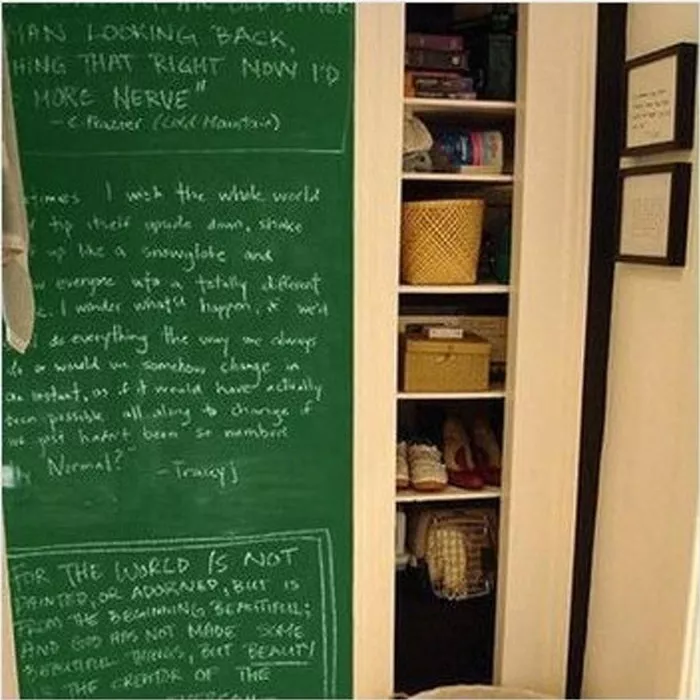 AN OLD BITTER
MAN LOOKING BACK,
HING THAT RIGHT NOW I'D
MORE NERVE"
- C. Frazier (Cold Mountain)
times I wish the whole world
tip itself upside down, shake
up like a snowglobe and
everyone into a totally different
I wonder what'd happen, if we'd
do everything the way we always
do or would we somehow change in
an instant, as if it would have actually
been possible all along to change if
we just hadn't been so
Normal?" - Tracey J
FOR THE WORLD IS NOT
PAINTED, OR ADORNED, BUT IS
FROM THE BEGINNING BEAUTIFUL;
AND GOD HAS NOT MADE SOME
BEAUTIFUL THINGS, BUT BEAUTY
IS THE CREATOR OF THE